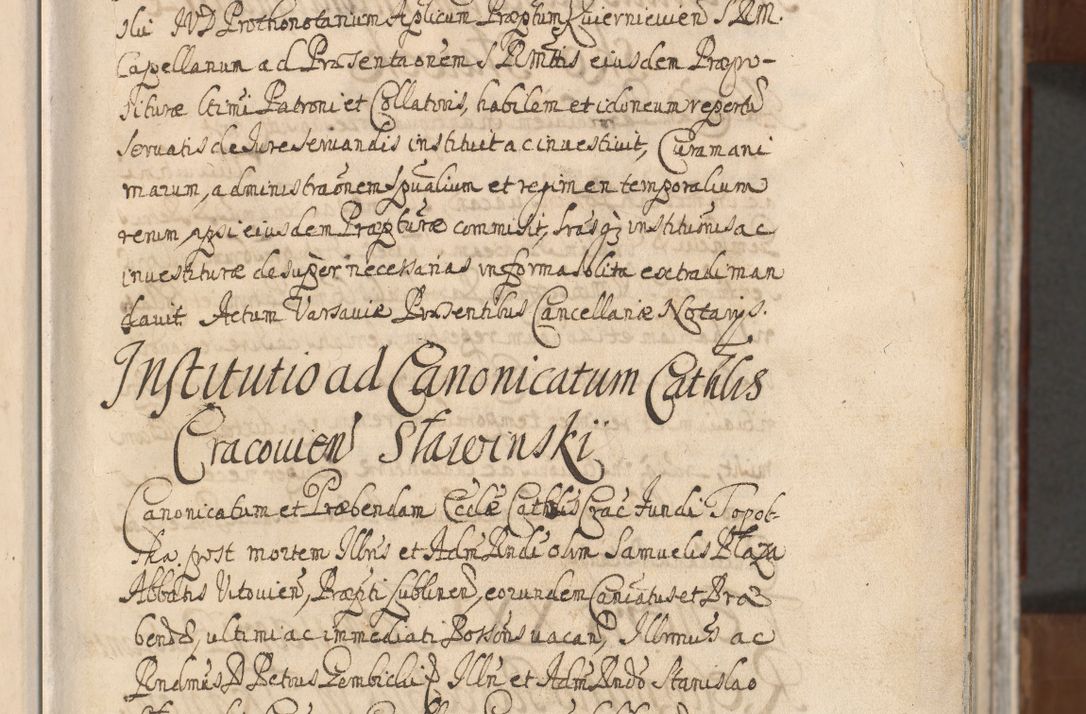 IVD Prothonotarium Aplicum Præptum Skierniewien S R M.
Capellanum ad Præsentaõnem S R Mttis eiusdem Præpo-
situræ ltimi Patroni et Collatoris, habilem et idoneum repertũ
servatis de Jure servandis instituit ac investivit, Curam ani
marum, administraõnem spũalium et regimen temporalium
rerum, ipsi eiusdem Præpturæ commisit, lrãsq; institutõnis ac
investituræ desuper necessarias in forma solita extradi man
davit. Actum Varsaviæ Præsentibus Cancellariæ Notarijs.
Institutio ad Canonicatum Cathlis
Cracovien Sławinskij
Canonicatum et Præbendam Ecclæ Cathlis Crac fundi Topol-
ska. post mortem Illris et Adm Rndi olim Samuelis Płaza
Abbatis Vitovien, Præpti Lublinen, eorundem Canẽatus et Præ
bendæ, ultimi ac immediati Possõris vacan, Illrmus ac
Rndmus D Petrus Gembicki Illri et Adm Rndo Stanislao